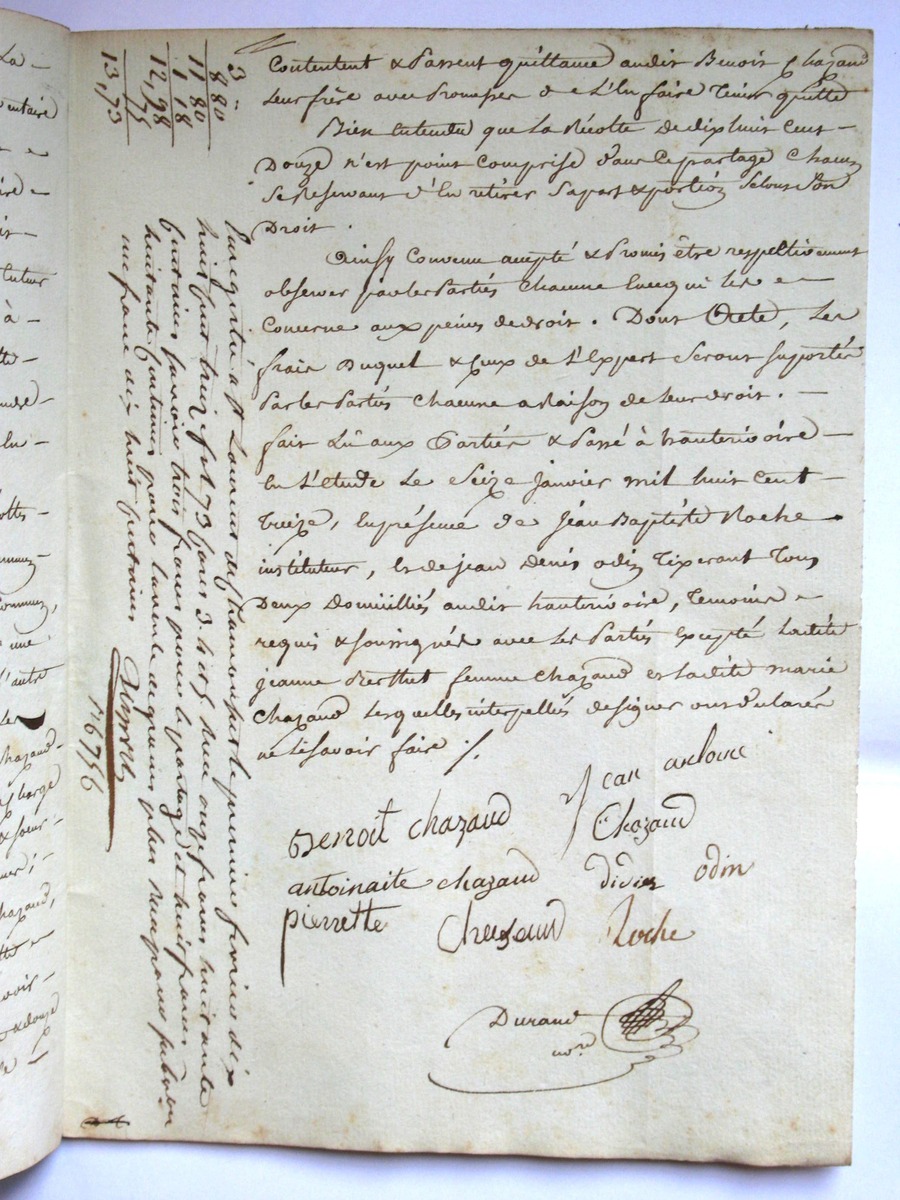 Contentent & Passent quittance audit Benoit Chazaud
Leur frère avec Promesse de l'En faire Tenir quitte
Bien Entendu que La Récolte de dix huit Cent
Douze n'est point Comprise dans le partage Chacun
Se Reservant d'En retirer Sa part & portion Selon Son
Droit.
Ainsy Convenu accepté & Promis être respectivement
observer par les Partiés Chacune En ce qui les
Concerne aux peines de droit. Dont Acte, Les
frais Duquel & Ceux de L'Expert Seront Supportés
Par les Partiés Chacune a Raison de leur droit.
fait Lû aux Partiés & Passé à hauterivoire
En L'etude Le Seize Janvier mil huit Cent
Treize, En présence de Jéan Baptiste Roche
instituteur, Et de jean denis odin Tixerant Tous
Deux Domiciliés audit hauterivoire, Temoins
requis & Soussignés avec les Partiés Excepté Ladite
Jeanne Berthet femme Chazaud et Ladite marie
Chazaud Lesquelles interpellés de signer ont déclarés
ne le savoir faire ./.
Benoit chazaud
Jean antoine
Chazaud
antoinaite chazaud
odin
pierrette Chazaud
Roche
Durand
no.re
3
8 80
11 80
1 18
12,98
75
13,73
Enregistré à St Laurent de Chamousset le premier février dix
huit cent treize f.
73
reçu onze francs huitante
Centimes savoir trois francs pour le partage et huit francs
huitante Centimes pour
plus
une franc dix huit Centimes